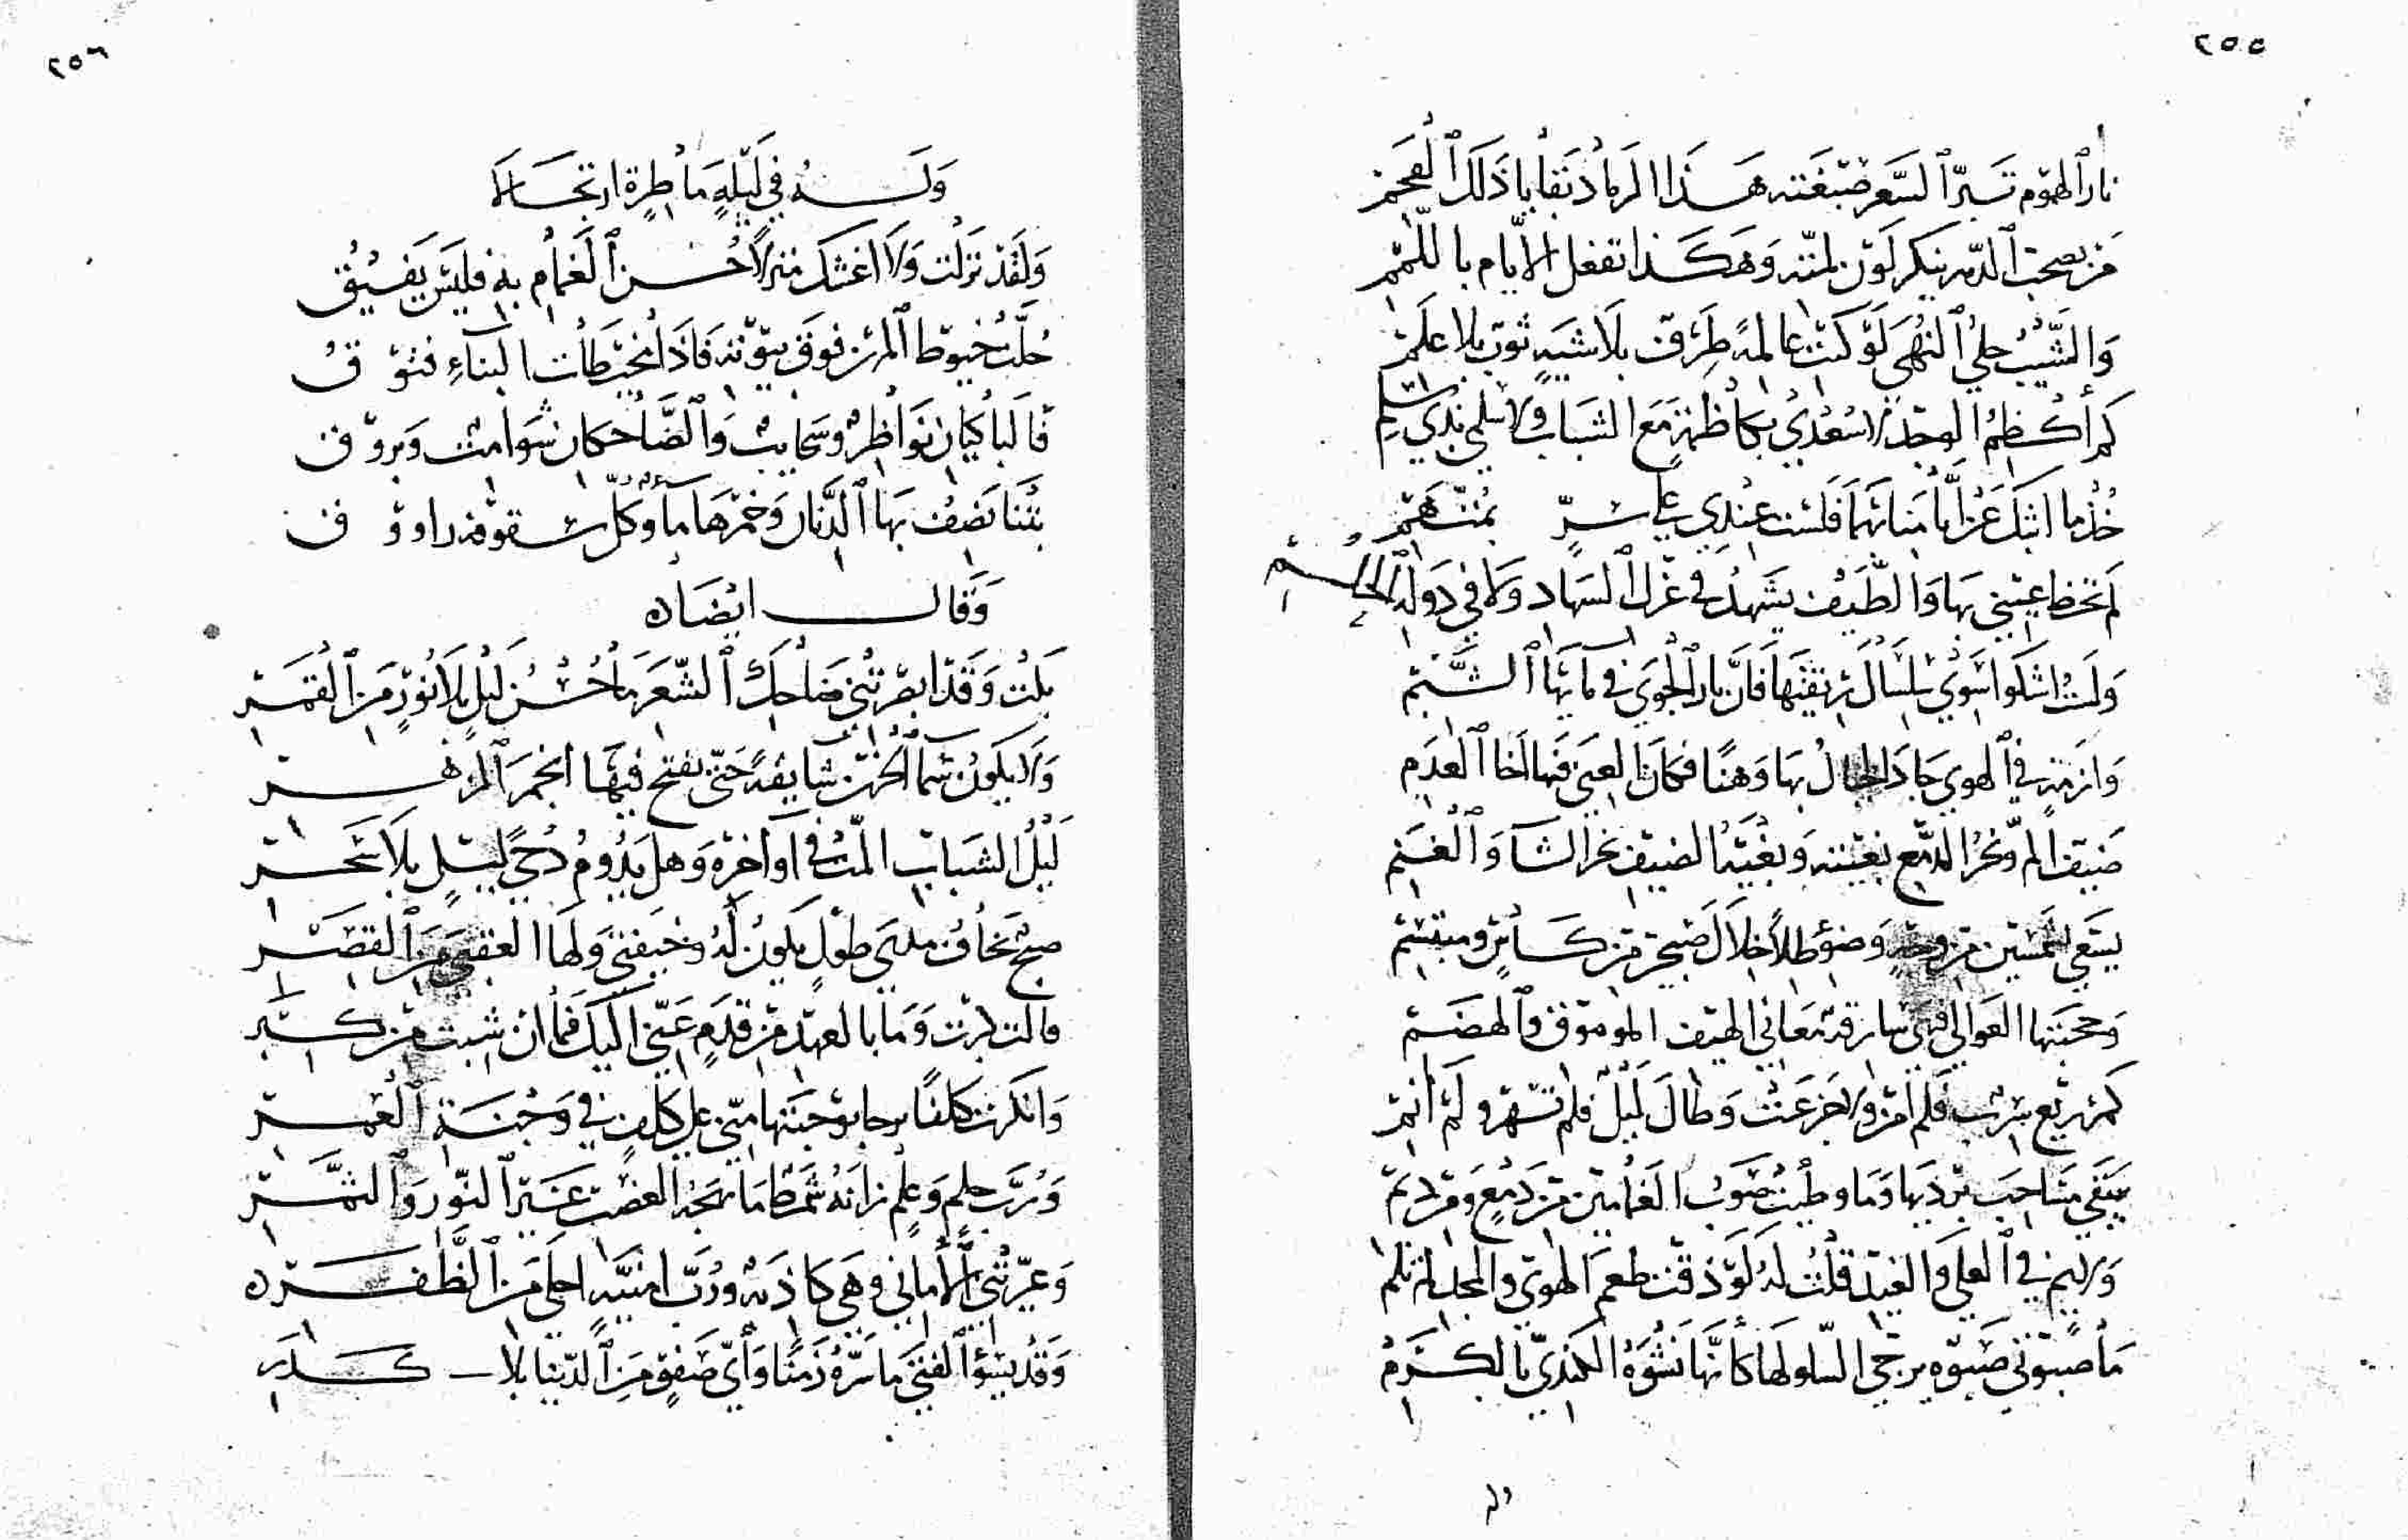 ٢٥٥
نار الهموم تسرّ السعر صبغته هذا الرماد بقايا ذلك الفحم
من يصحب الدهر ينكر لون لمته وهكذا تفعل الايام باللمم
والشيب حلي النهى لو كنت عالمه طرف بلا شيه ثوب بلا علم
كم أكظم الوجد لا سعدى بكاظمة مع الشباب ولا سلمى بذي سلم
خذ ما ابثك عن بمتهم
لم تحظ عيني بها والطيف يشهد في غزل السهاد ولا في دولة الحلم
ولست اشكوا سوى سلسال ريقتها فان نار الجوى في مايها الشبم
وازمة في الهوى جاد الخيال بها وهنا فكان العمى فيها اخا العدم
ضيف الم ونحر الدمع بغيته وبغية الضيف نحر الشاء والغنم
يسعى بشمسين من وجه وضوء طلا خلال صبحين من كاس ومبتسم
وحجبتها العوالي فهي سارقة معاني الهيف الموموق والهضم
كم ريع سرب فلم امرر ولا جزعت وطال ليل فلم تسهر ولم انم
يبقى مساحب برديها وما وطيت صوب الغمامين من دمع ومن ديم
ولايم في العلى والغيد قلت له لو ذقت طعم الهوى والمجد لم تلم
ما صبوتي صبوة يرجى السلو لها كانها نشوة الكندي بالكرم
وله
٢٥٦
وله في ليلة ماطرة ارتجالا
ولقد نزلت ولا اغشك منزلا حسن الغمام به فليس يفيق
حلت خيوط المزن فوق بيوته فاذا خيطات البناء فتوق
فالباكيان نواظر وسحايب والضاحكان شوامت وبروق
بتنا نضيف بها الدنان وخمرها ماء وكل سقوفه راووق
وقال ايضا ه
بكت وقد ابصرتني ضاحك الشعر ما حسن ليل بلا نور من القمر
ولا يكون سماء الحزن شايقة حتى يفتح فيها انجم الزهر
ليل الشباب الم في آواخره وهل يدوم دجى ليل بلا سحر
صبح نخاف مدى طول يكون له وخيفتي ولها العقبى من القصر
قالت كبرت وما بالعهد من قدم عني اليك فما ان شبت من كبر
وانكرت كلفا برحا بوجنتها مني على كلف في وجنة القمر
ورب حلم وعلم زانه شمط ما يمجد الغصن غير النور والثمر
وغيرتني الأماني وهي كاذبة ورب امنية احلى من الظفر ه
وقد يسوء الفتى ما سره زمنا وأي صفو من الدنيا بلا كدر